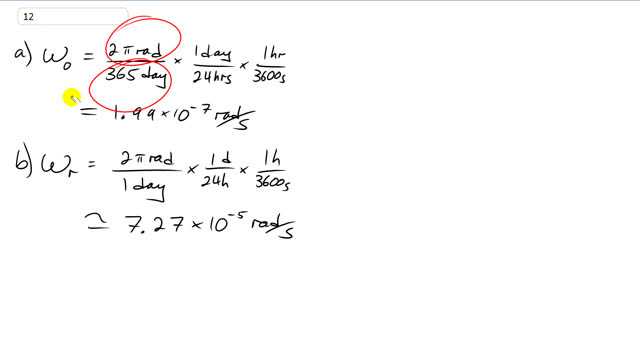 12
a) ω₀ = 2π rad / 365 day × 1 day / 24 hrs × 1 hr / 3600 s
= 1.99 × 10⁻⁷ rad/s
b) ωᵣ = 2π rad / 1 day × 1 d / 24 h × 1 h / 3600 s
≃ 7.27 × 10⁻⁵ rad/s